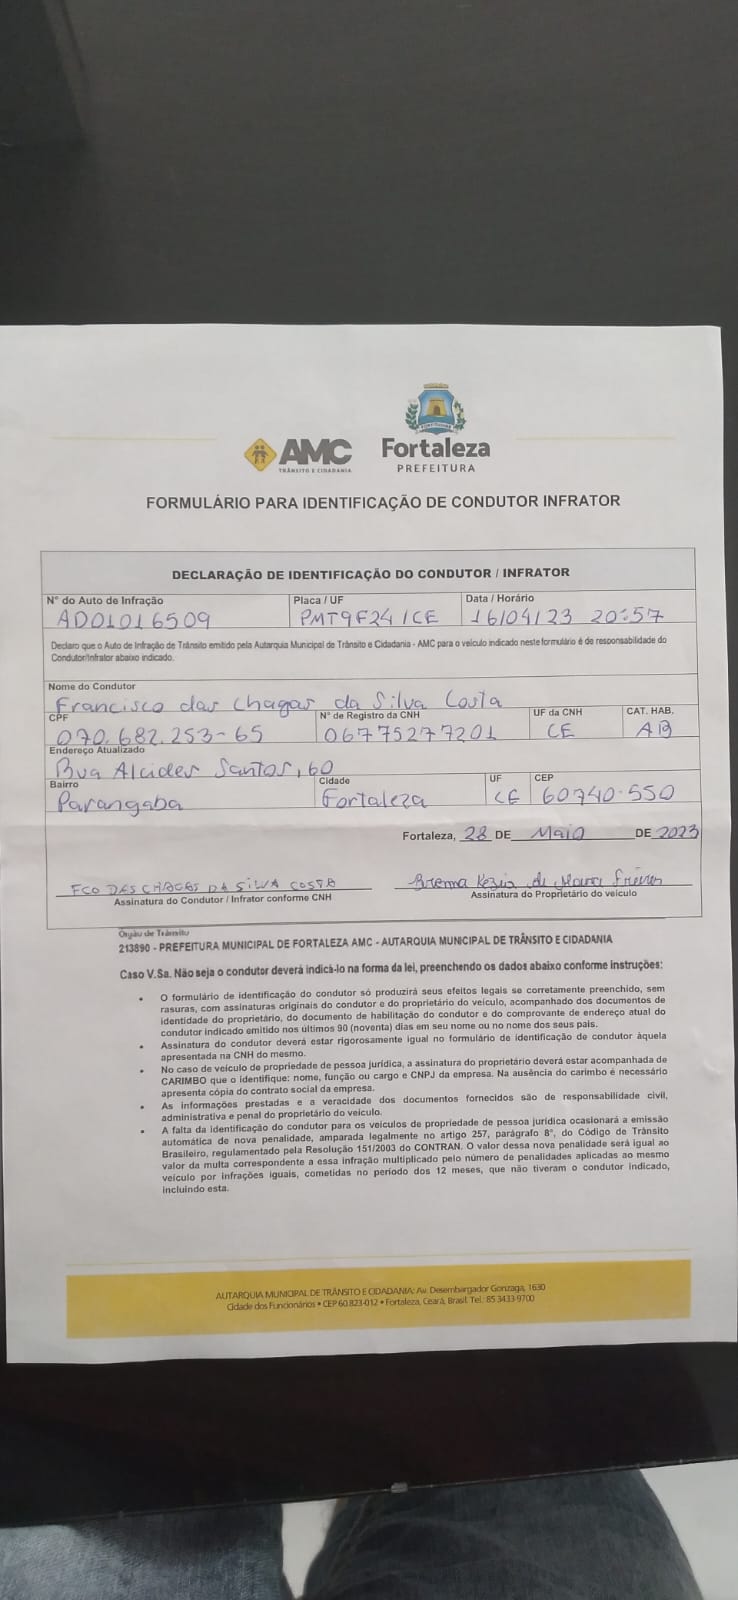 AMC
TRÂNSITO E CIDADANIA
Fortaleza
PREFEITURA
FORMULÁRIO PARA IDENTIFICAÇÃO DE CONDUTOR INFRATOR
DECLARAÇÃO DE IDENTIFICAÇÃO DO CONDUTOR / INFRATOR
N° do Auto de Infração Placa / UF Data / Horário
AD01016509 PMT9F24 / CE 16/04/23 20:57
Declaro que o Auto de Infração de Trânsito emitido pela Autarquia Municipal de Trânsito e Cidadania - AMC para o veículo indicado neste formulário é de responsabilidade do
Condutor/Infrator abaixo indicado.
Nome do Condutor
Francisco das Chagas da Silva Costa
CPF N° de Registro da CNH UF da CNH CAT. HAB.
070.682.253-65 06775277201 CE AB
Endereço Atualizado
Rua Alcides Santos, 60
Bairro Cidade UF CEP
Parangaba Fortaleza CE 60740-550
Fortaleza, 28 DE Maio DE 2023
FCO DAS CHAGAS DA SILVA COSTA Brenna Kezia de Moura Freires
Assinatura do Condutor / Infrator conforme CNH Assinatura do Proprietário do veículo
Órgão de Trânsito
213890 - PREFEITURA MUNICIPAL DE FORTALEZA AMC - AUTARQUIA MUNICIPAL DE TRÂNSITO E CIDADANIA
Caso V.Sa. Não seja o condutor deverá indicá-lo na forma da lei, preenchendo os dados abaixo conforme instruções:
• O formulário de identificação do condutor só produzirá seus efeitos legais se corretamente preenchido, sem
rasuras, com assinaturas originais do condutor e do proprietário do veículo, acompanhado dos documentos de
identidade do proprietário, do documento de habilitação do condutor e do comprovante de endereço atual do
condutor indicado emitido nos últimos 90 (noventa) dias em seu nome ou no nome dos seus pais.
• Assinatura do condutor deverá estar rigorosamente igual no formulário de identificação de condutor àquela
apresentada na CNH do mesmo.
• No caso de veículo de propriedade de pessoa jurídica, a assinatura do proprietário deverá estar acompanhada de
CARIMBO que o identifique: nome, função ou cargo e CNPJ da empresa. Na ausência do carimbo é necessário
apresenta cópia do contrato social da empresa.
• As informações prestadas e a veracidade dos documentos fornecidos são de responsabilidade civil,
administrativa e penal do proprietário do veículo.
• A falta da identificação do condutor para os veículos de propriedade de pessoa jurídica ocasionará a emissão
automática de nova penalidade, amparada legalmente no artigo 257, parágrafo 8°, do Código de Trânsito
Brasileiro, regulamentado pela Resolução 151/2003 do CONTRAN. O valor dessa nova penalidade será igual ao
valor da multa correspondente a essa infração multiplicado pelo número de penalidades aplicadas ao mesmo
veículo por infrações iguais, cometidas no período dos 12 meses, que não tiveram o condutor indicado,
incluindo esta.
AUTARQUIA MUNICIPAL DE TRÂNSITO E CIDADANIA: Av. Desembargador Gonzaga, 1630
Cidade dos Funcionários • CEP 60.823-012 • Fortaleza, Ceará, Brasil. Tel.: 85 3433-9700